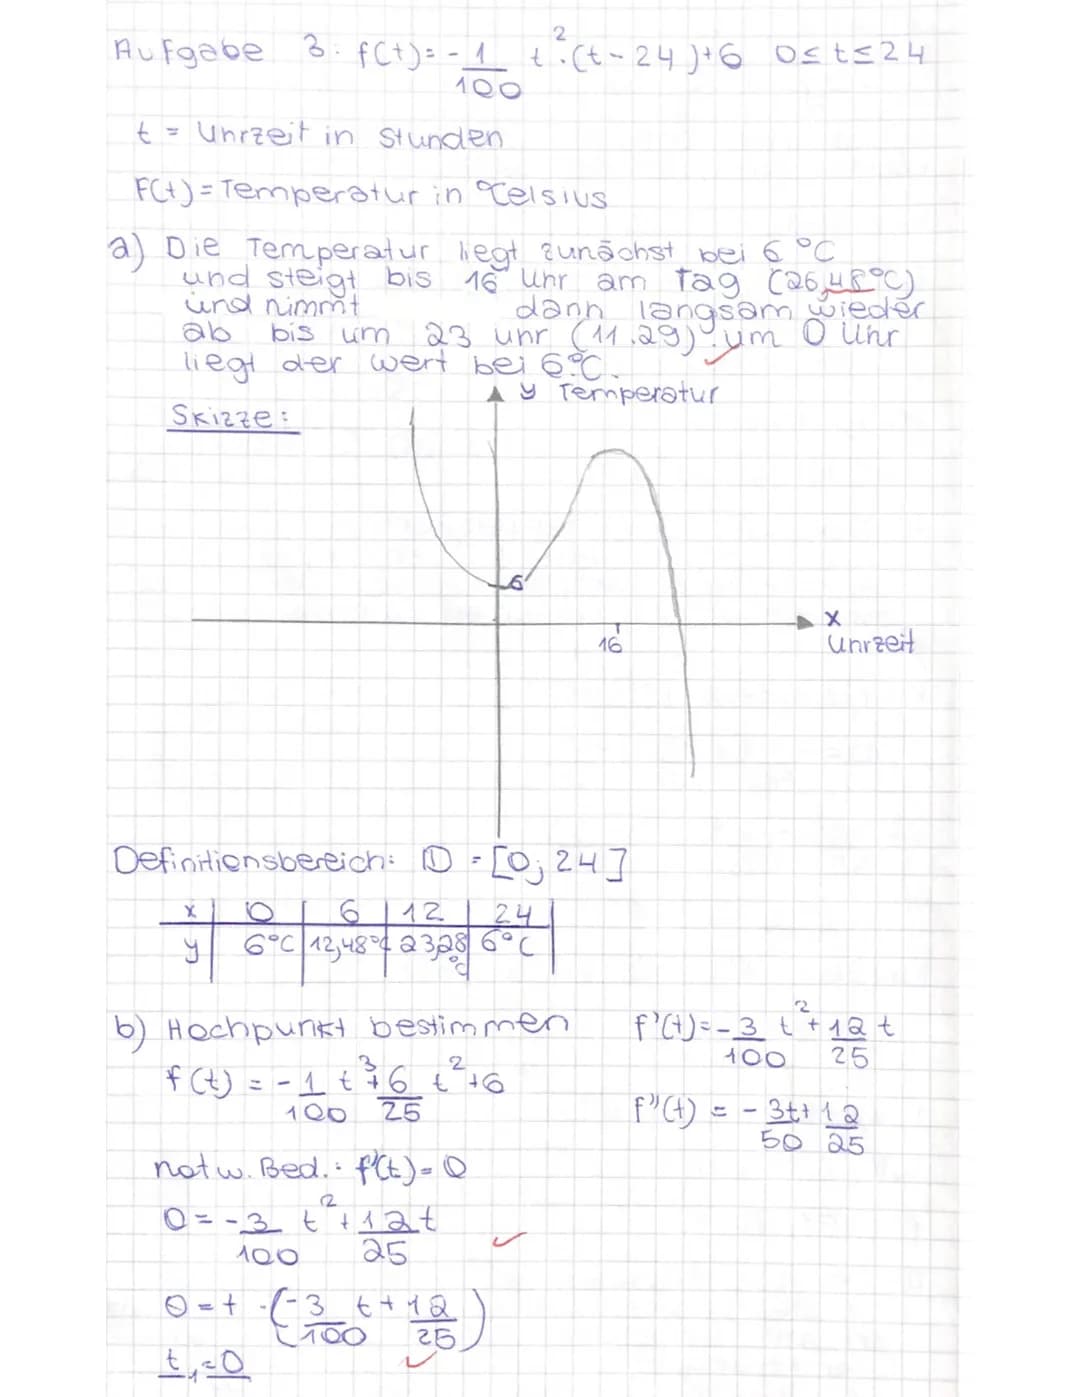 Aufgabe 3: f(t) = - 1/100 t²·(t-24)+6 0≤t≤24
t = Uhrzeit in Stunden
F(t) = Temperatur in °Celsius
a) Die Temperatur liegt zunächst bei 6 °C
und steigt bis 16 Uhr am Tag (26,48°C)
und nimmt dann langsam wieder
ab bis um 23 uhr (11.29). um 0 Uhr
liegt der wert bei 6°C.
y Temperatur
Skizze:
6
x
16
Uhrzeit
Definitionsbereich: D = [0; 24]
x | 0 | 6 | 12 | 24
y | 6°C | 12,48°C | 23,28°C | 6°C
b) Hochpunkt bestimmen f'(t) = - 3/100 t² + 12/25 t
f(t) = - 1/100 t³ + 6/25 t² + 6
f''(t) = - 3/50 t + 12/25
notw. Bed.: f'(t) = 0
0 = - 3/100 t² + 12/25 t
0 = t · (- 3/100 t + 12/25)
t₁ = 0